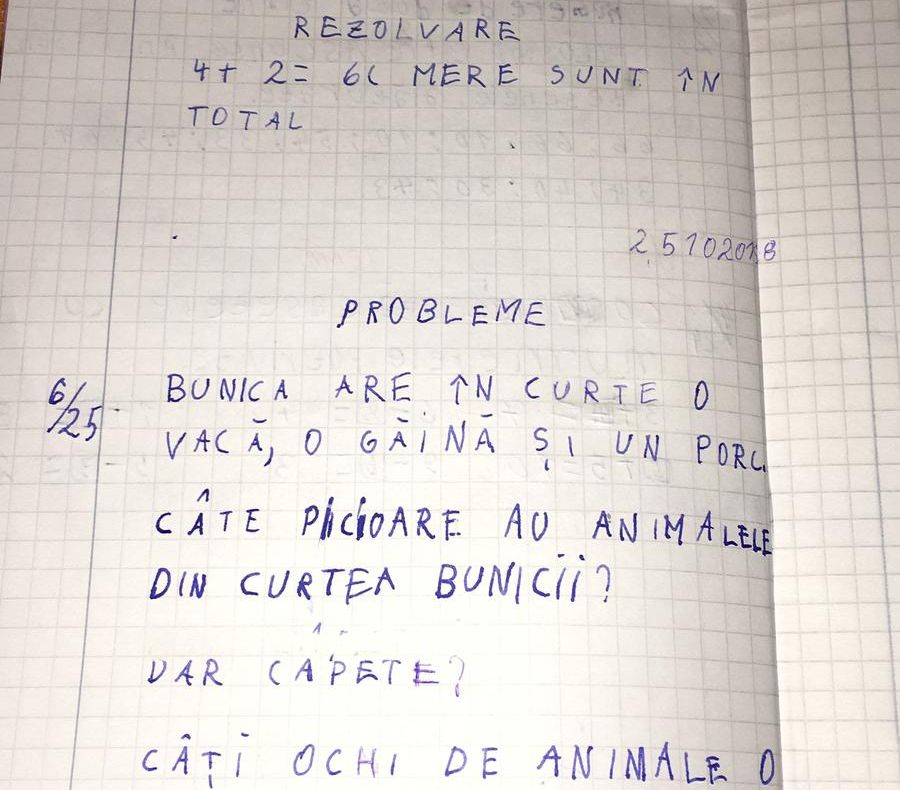 REZOLVARE
4+ 2= 6( MERE SUNT ÎN
TOTAL
25102018
PROBLEME
6/25 BUNICA ARE ÎN CURTE O
VACĂ, O GĂINĂ ȘI UN PORC.
CÂTE PICIOARE AU ANIMALELE
DIN CURTEA BUNICII?
DAR CAPETE?
CÂȚI OCHI DE ANIMALE O